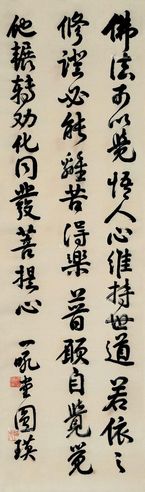 佛法可以覺悟人心維持世道若依之
修證必能離苦得樂普願自覺覺
他輾轉勸化同發菩提心
一吼堂圓瑛